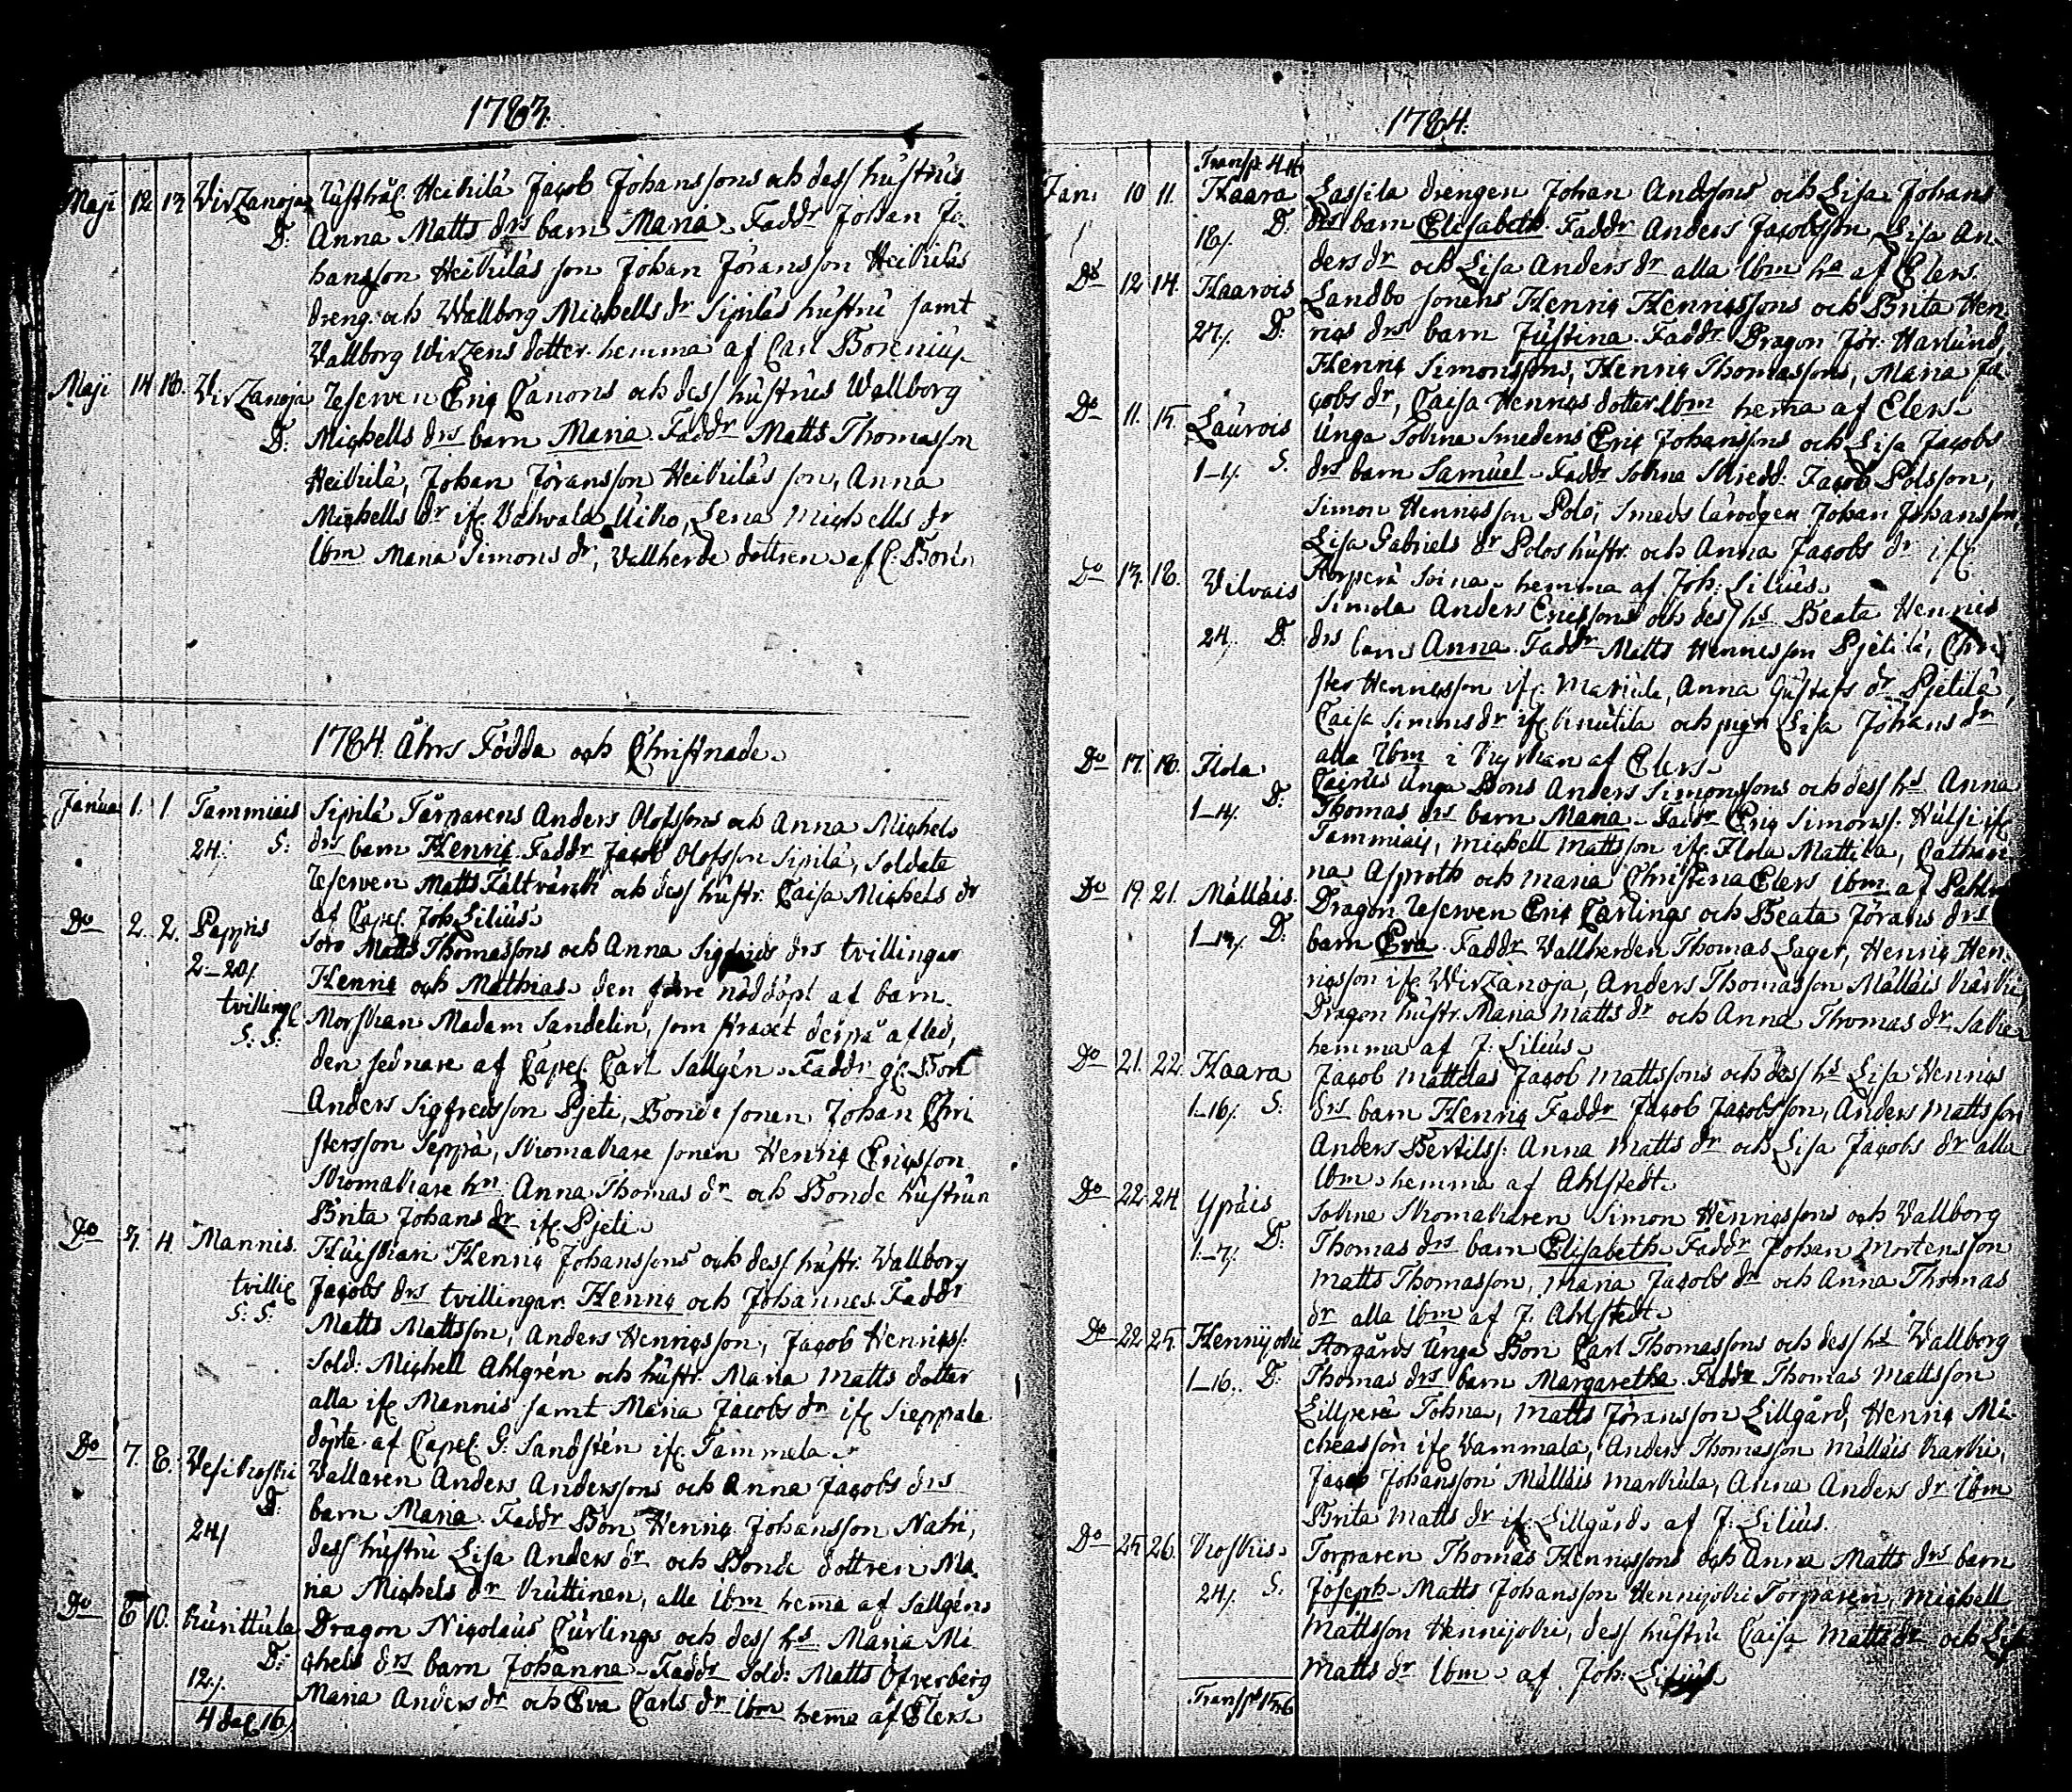 1783.
Maji 12 13 Virzanoja Rusthål. Heikilä Jacob Johanssons och dess hustrus
D: Anna Matts drs barn Maria. Faddr Johan Jo-
hansson Heikiläs son Johan Jöransson Heikiläs
dreng och Wallborg Michells dr Sipiläs hustru samt
Vallborg Wirzens dotter. hemma af Carl Borenius
Maji 14 18. Virzanoja Reserven Eric Canons och dess hustrus Wallborg
D: Michells drs barn Maria. Faddr Matts Thomasson
Heikilä, Johan Jöransson Heikiläs son, Anna
Michells dr if. Uitto, Lena Michells dr
ibm Maria Simons dr, Vallherde dottren af C. Boren
1784. Åhrs Födda och Christnade.
Janua 1. 1 Tammiais Sipilä Torparens Anders Olofssons och Anna Michels
24. S: drs barn Henric. Faddr Jacob Olofsson Sipilä, Soldats
Reserven Matts Fältvärdt och dess hustr. Caisa Michels dr
af Capel. Joh Lilius.
Do 2. 2. Pappis Soro Matts Thomassons och Anna Sigfrids drs tvillingar
2-20/. Henric och Mathias. den förre nöddöpt af barn
tvilling Morskan Madam Sandelin, som straxt derpå afled,
S: S: den sednare af Capel. Carl Sallgén. Faddr gl. Bon
Anders Sigfredsson Pjeti, Bonde sonen Johan Chri
stersson Seppä, Skomakare sonen Henric Ericsson
Skomakare hn Anna Thomas dr och Bonde hustrun
Brita Johans dr if Pjeti.
Do 3. 4. Mannis. Huiskari Henric Johanssons och dess hustr. Vallborg
tvilli Jacobs drs tvillingar. Henric och Johannes. Faddr
S: S: Matts Mattsson, Anders Henricsson, Jacob Henricss:
Sold: Michell Ahlgrén och hustr. Maria Matts dotter
alla if Mannis samt Maria Jacobs dr if Sieppala
döpte af Capel. G: Sandstén if Tammela.
Do 7. 8. Vesikoski Vallaren Anders Anderssons och Anna Jacobs drs
D: barn Maria. Faddr Bon Henric Johansson Nahi,
24/ dess hustru Lisa Anders dr och Bonde dottren Ma
ria Michels dr Ruttinen, alla ibm hema af Sallgéns
Do 8 10. Kunittula Dragon Nicolaus Curlings och dess hs Maria Mi
D: chels drs barn Johanna. Faddr Sold: Matts Öfverberg
12/. Maria Anders dr och Eva Carls dr ibm hema af Elers.
4 16/.
1784.
Transp 4.16
Jan: 10 11. Haara Lassila drengen Johan Anderssons och Lisa Johans
18/. D: drs barn Elisabeth. Faddr Anders Jacobsson, Lisa An-
ders dr och Lisa Anders dr alla ibm ha af Elers.
Do 12 14. Haarois Landbo sonens Henric Henricssons och Brita Hen
27/. D: rics drs barn Justina. Faddr Dragon Jör: Harlund,
Henric Simonssons, Henric Thomassons, Maria Ja
cobs dr, Caisa Henrics dotter ibm hema af Elers.
Do 11. 15. Laurois Unga Sockne Smedens Eric Johanssons och Lisa Jacobs
1-1/. S. drs barn Samuel. Faddr Sockne Skredd: Jacob Polsson,
Simon Henricsson Polo, Smeds lärodgen Johan Johansson,
Lisa Gabriels dr Polos hustr. och Anna Jacobs dr if
Torpera Soina. hemma af Joh: Lilius.
Do 13. 18. Vilvais Simola Anders Ericssons och dess hs Beata Henrics
24/. D: drs barn Anna. Faddr Matts Henricsson Pjetilä, Chri
ster Henricsson if. Mariula, Anna Gustafs dr Pjetilä,
Caisa Simons dr if Knutila och pign Lisa Johans dr
alla ibm i kyrkan af Elers.
Do 17. 18. Flola Unga Bons Anders Simonssons och dess hs Anna
1-4/. D: Thomas drs barn Maria. Faddr Eric Simonss: Hulsi if
Tammiais, Michell Mattsson if Flola Mattila, Cathari
na Asproth och Maria Christina Elers ibm af Pahlm
Do 19. 21. Mälläis. Dragon Reserven Eric Carlings och Beata Jörans drs
1-13/. D: barn Eva. Faddr Vallherden Thomas Lager, Henric Hen
ricsson if. Wirzanoja, Anders Thomasson Mälläis Karki,
Dragon hustr. Maria Matts dr och Anna Thomas dr
hemma af J: Lilius.
Do 21. 22. Haara Jacob Mattelas Jacob Mattssons och dess hs Lisa Henrics
1-16/. S: drs barn Henric. Faddr Jacob Jacobsson, Anders Mattsson
Anders Bertilss: Anna Matts dr och Lisa Jacobs dr alla
ibm hemma af Ahlstedt.
Do 22. 24 Ypäis Sockne Skomakaren Simon Henricssons och Vallborg
1-7/. D: Thomas drs barn Elisabeth. Faddr Johan Mortensson
Matts Thomasson, Maria Jacobs dr och Anna Thomas
dr alla ibm af J. Ahlstedt.
Do 22 25. Hennijoki Storgårds Unga Bon Carl Thomassons och dess hs Wallborg
1-16. D: Thomas drs barn Margaretha. Faddr Thomas Mattsson
Lillperä Tohna, Matts Jöransson Lillgård, Henric Mi
cheasson if Vammala, Anders Thomasson Mälläis Karki,
Jacob Johansson Mälläis Markula, Anna Anders dr ibm
Brita Matts dr if. Lillgård. af J: Lilius.
Do 25 26. Koskis. Torparen Thomas Henricssons och Anna Matts drs barn
24/. S. Joseph. Matts Johansson Hennijoki Torparen, Michell
Mattsson Hennijoki, dess hustru Caisa Matts dr och Lis
Matts dr ibm. af Joh: Lilius.
Transpt